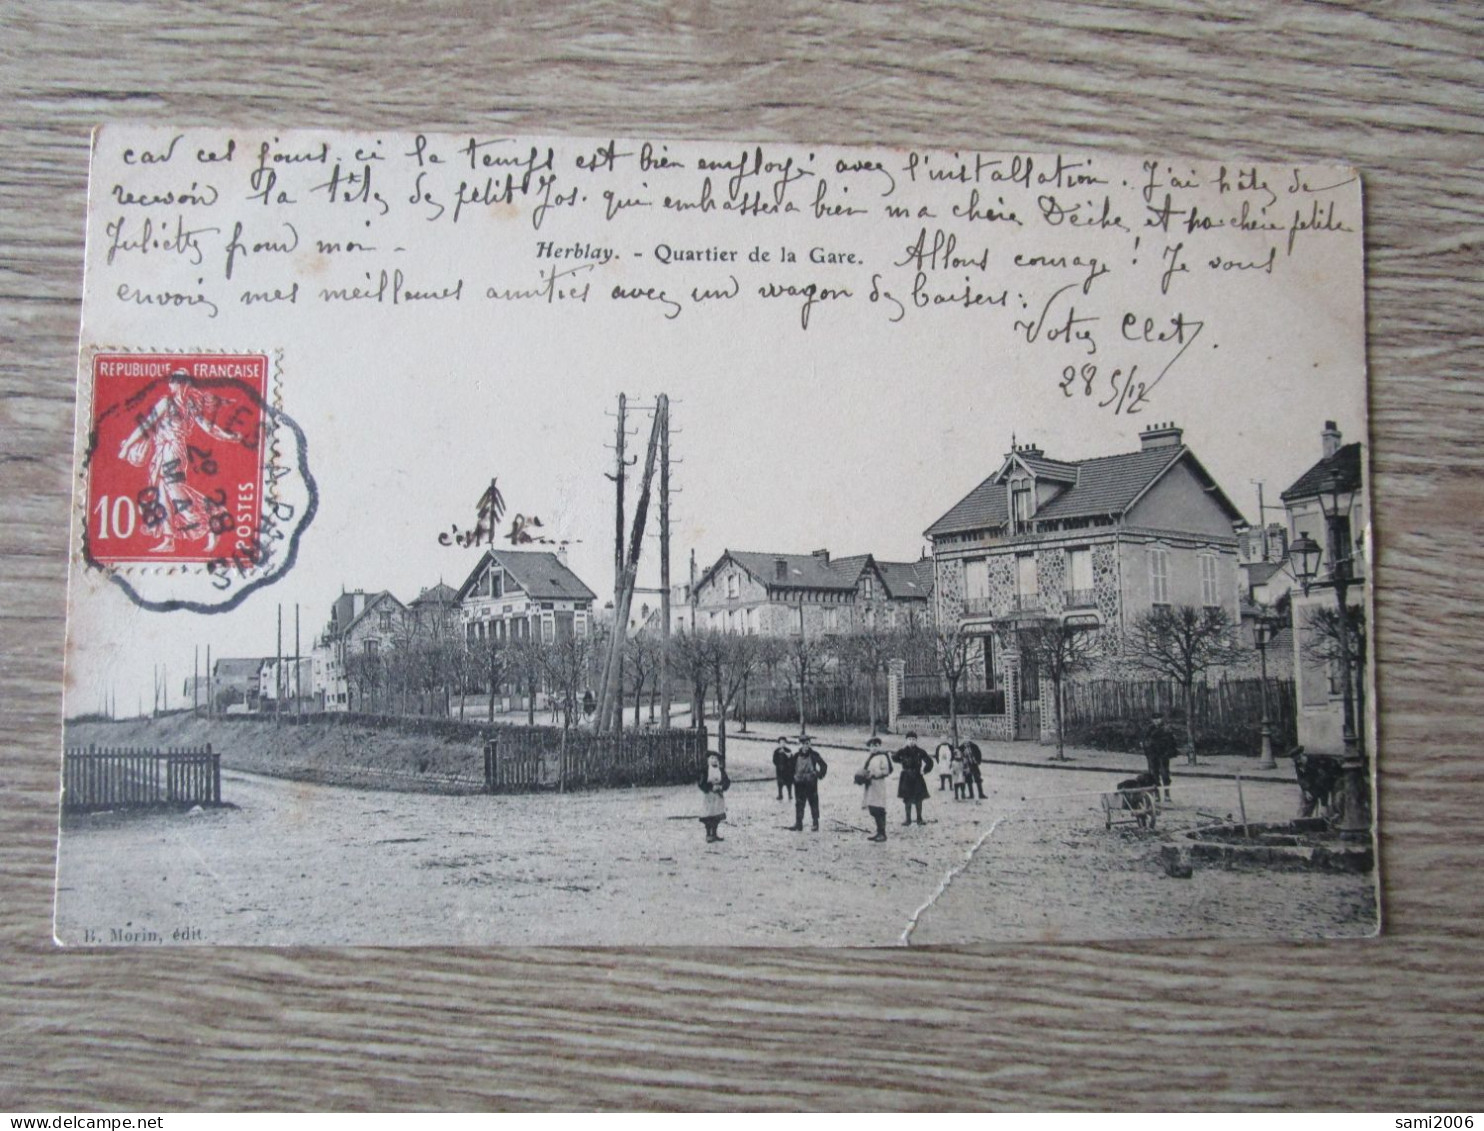 car ces jours-ci le temps est bien employé avec l'installation. J'ai hâte de
recevoir la tête de petit Jos. qui embrassera bien ma chère et par chère petite
Juliette pour moi -
Herblay. - Quartier de la Gare.
Allons courage! Je vous
envoie mes meilleures amitiés avec un wagon de baisers:
Votre Clet.
28 5/12
RÉPUBLIQUE FRANÇAISE
10
POSTES
MANTES A PARIS
2° 28
MAI
08
c'est là
B. Morin, édit.
sami2006